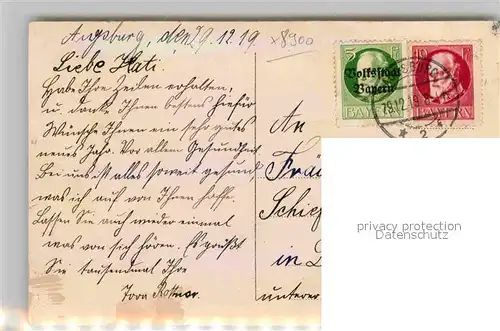 Augsburg, den 29. 12. 19. x8900
Liebe Kati.
Habe Ihre Zeilen erhalten,
u. danke Ihnen bestens hiefür
Wünsche Ihnen ein sehr gutes
neues Jahr. Vor allem Gesundheit
Bei uns ist alles soweit gesund
was ich auf von Ihnen hoffe.
Lassen Sie auch wieder einmal
was von sich hören. Es grüßt
Sie tausendmal Ihre
Volksstaat
Bayern
BAYERN
10
BAYERN
29.12.19
2
An
in
privacy protection
Datenschutz